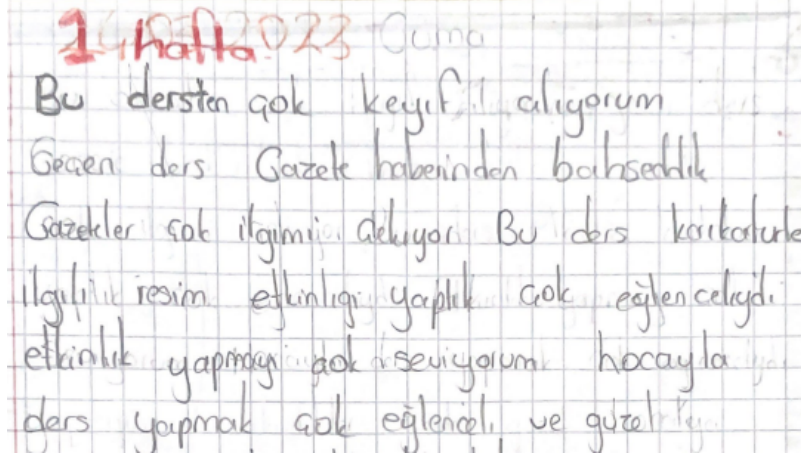 1. hafta 2023 Cuma
Bu dersten çok keyif alıyorum
Geçen ders Gazete haberinden bahseddik
Gazeteler çok ilgimi çekiyor Bu ders karikatürle
ilgili resim etkinliği yaptık çok eğlenceliydi
etkinlik yapmayı çok seviyorum hocayla
ders yapmak çok eğlenceli ve güzel